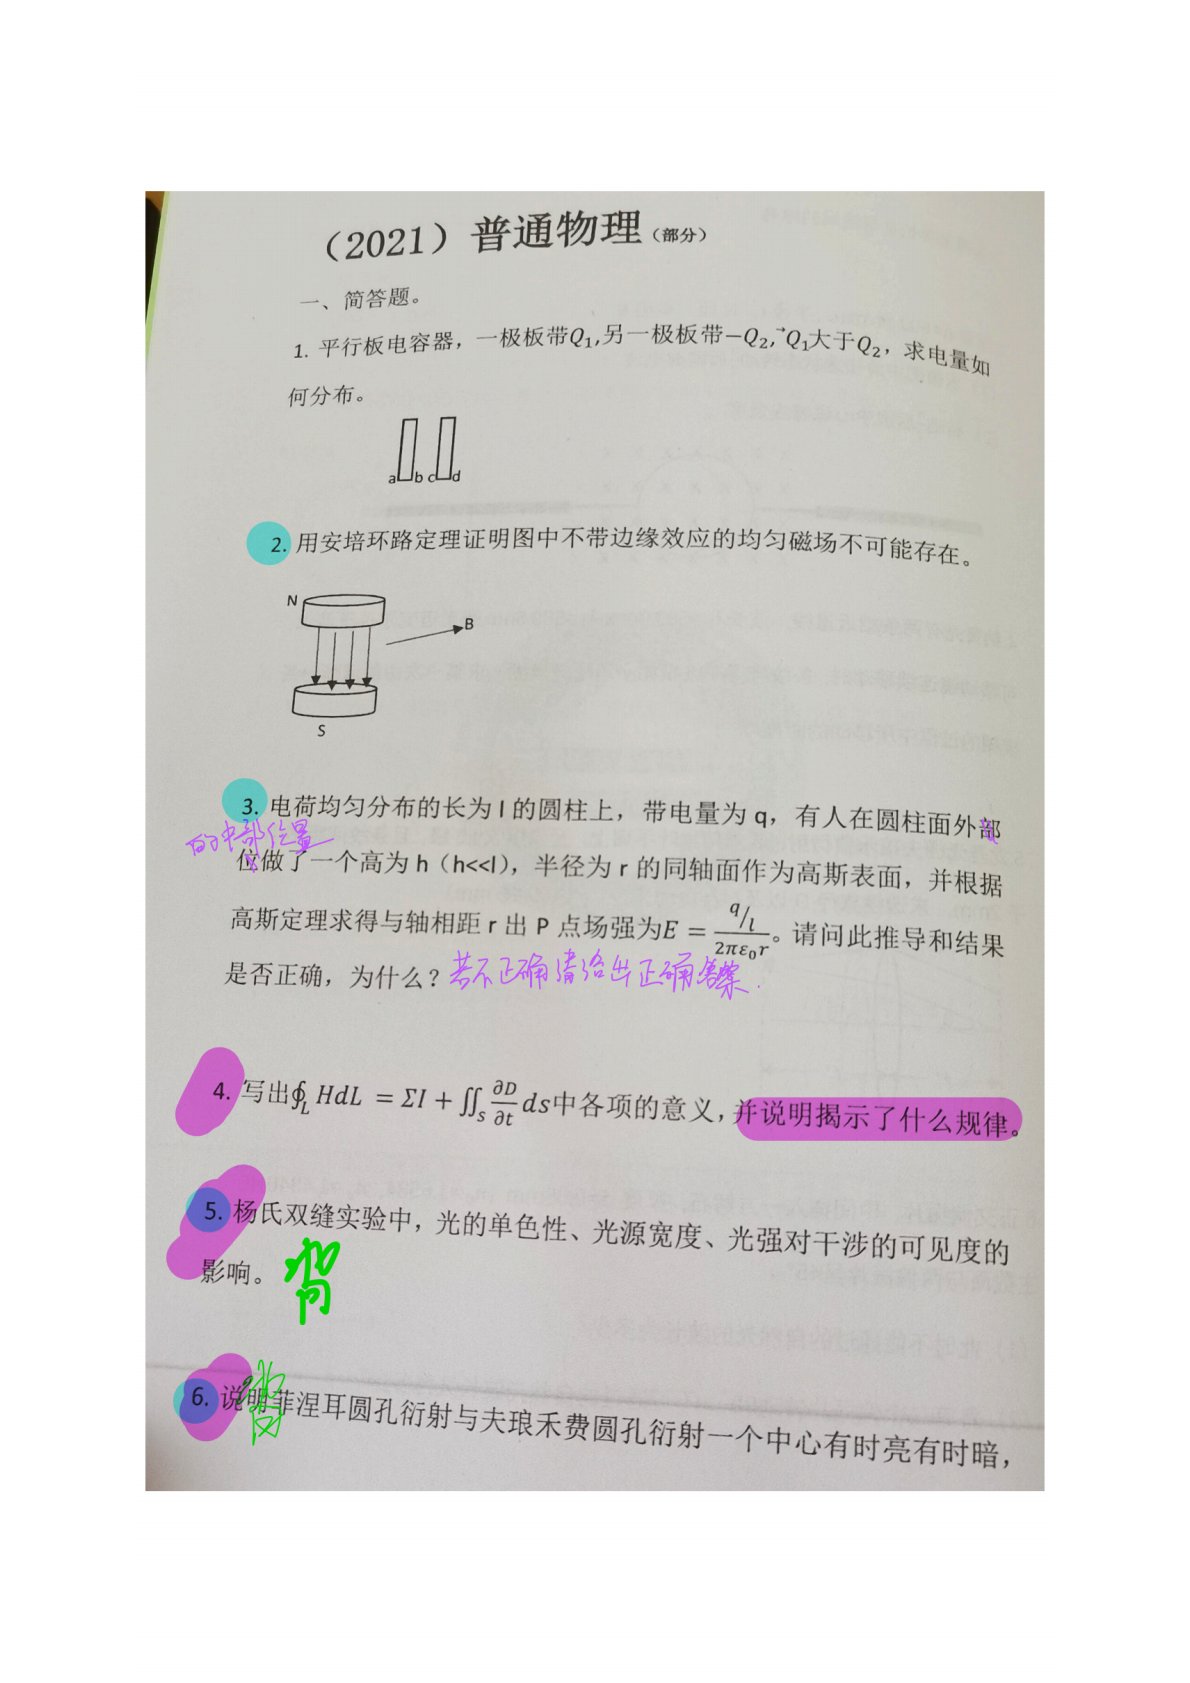 （2021）普通物理（部分）
一、简答题。
1. 平行板电容器，一极板带Q₁,另一极板带−Q₂,Q₁大于Q₂，求电量如
何分布。
a b c d
2. 用安培环路定理证明图中不带边缘效应的均匀磁场不可能存在。
N
B
S
3. 电荷均匀分布的长为 l 的圆柱上，带电量为 q，有人在圆柱面外部
的中部位置
位做了一个高为 h（h<<l），半径为 r 的同轴面作为高斯表面，并根据
高斯定理求得与轴相距 r 出 P 点场强为E = (q/l)/(2πε₀r)。请问此推导和结果
是否正确，为什么？若不正确请给出正确答案.
4. 写出∮_L HdL = ΣI + ∬_s ∂D/∂t ds中各项的意义，并说明揭示了什么规律。
5. 杨氏双缝实验中，光的单色性、光源宽度、光强对干涉的可见度的
影响。 背
6. 说明菲涅耳圆孔衍射与夫琅禾费圆孔衍射一个中心有时亮有时暗，
背